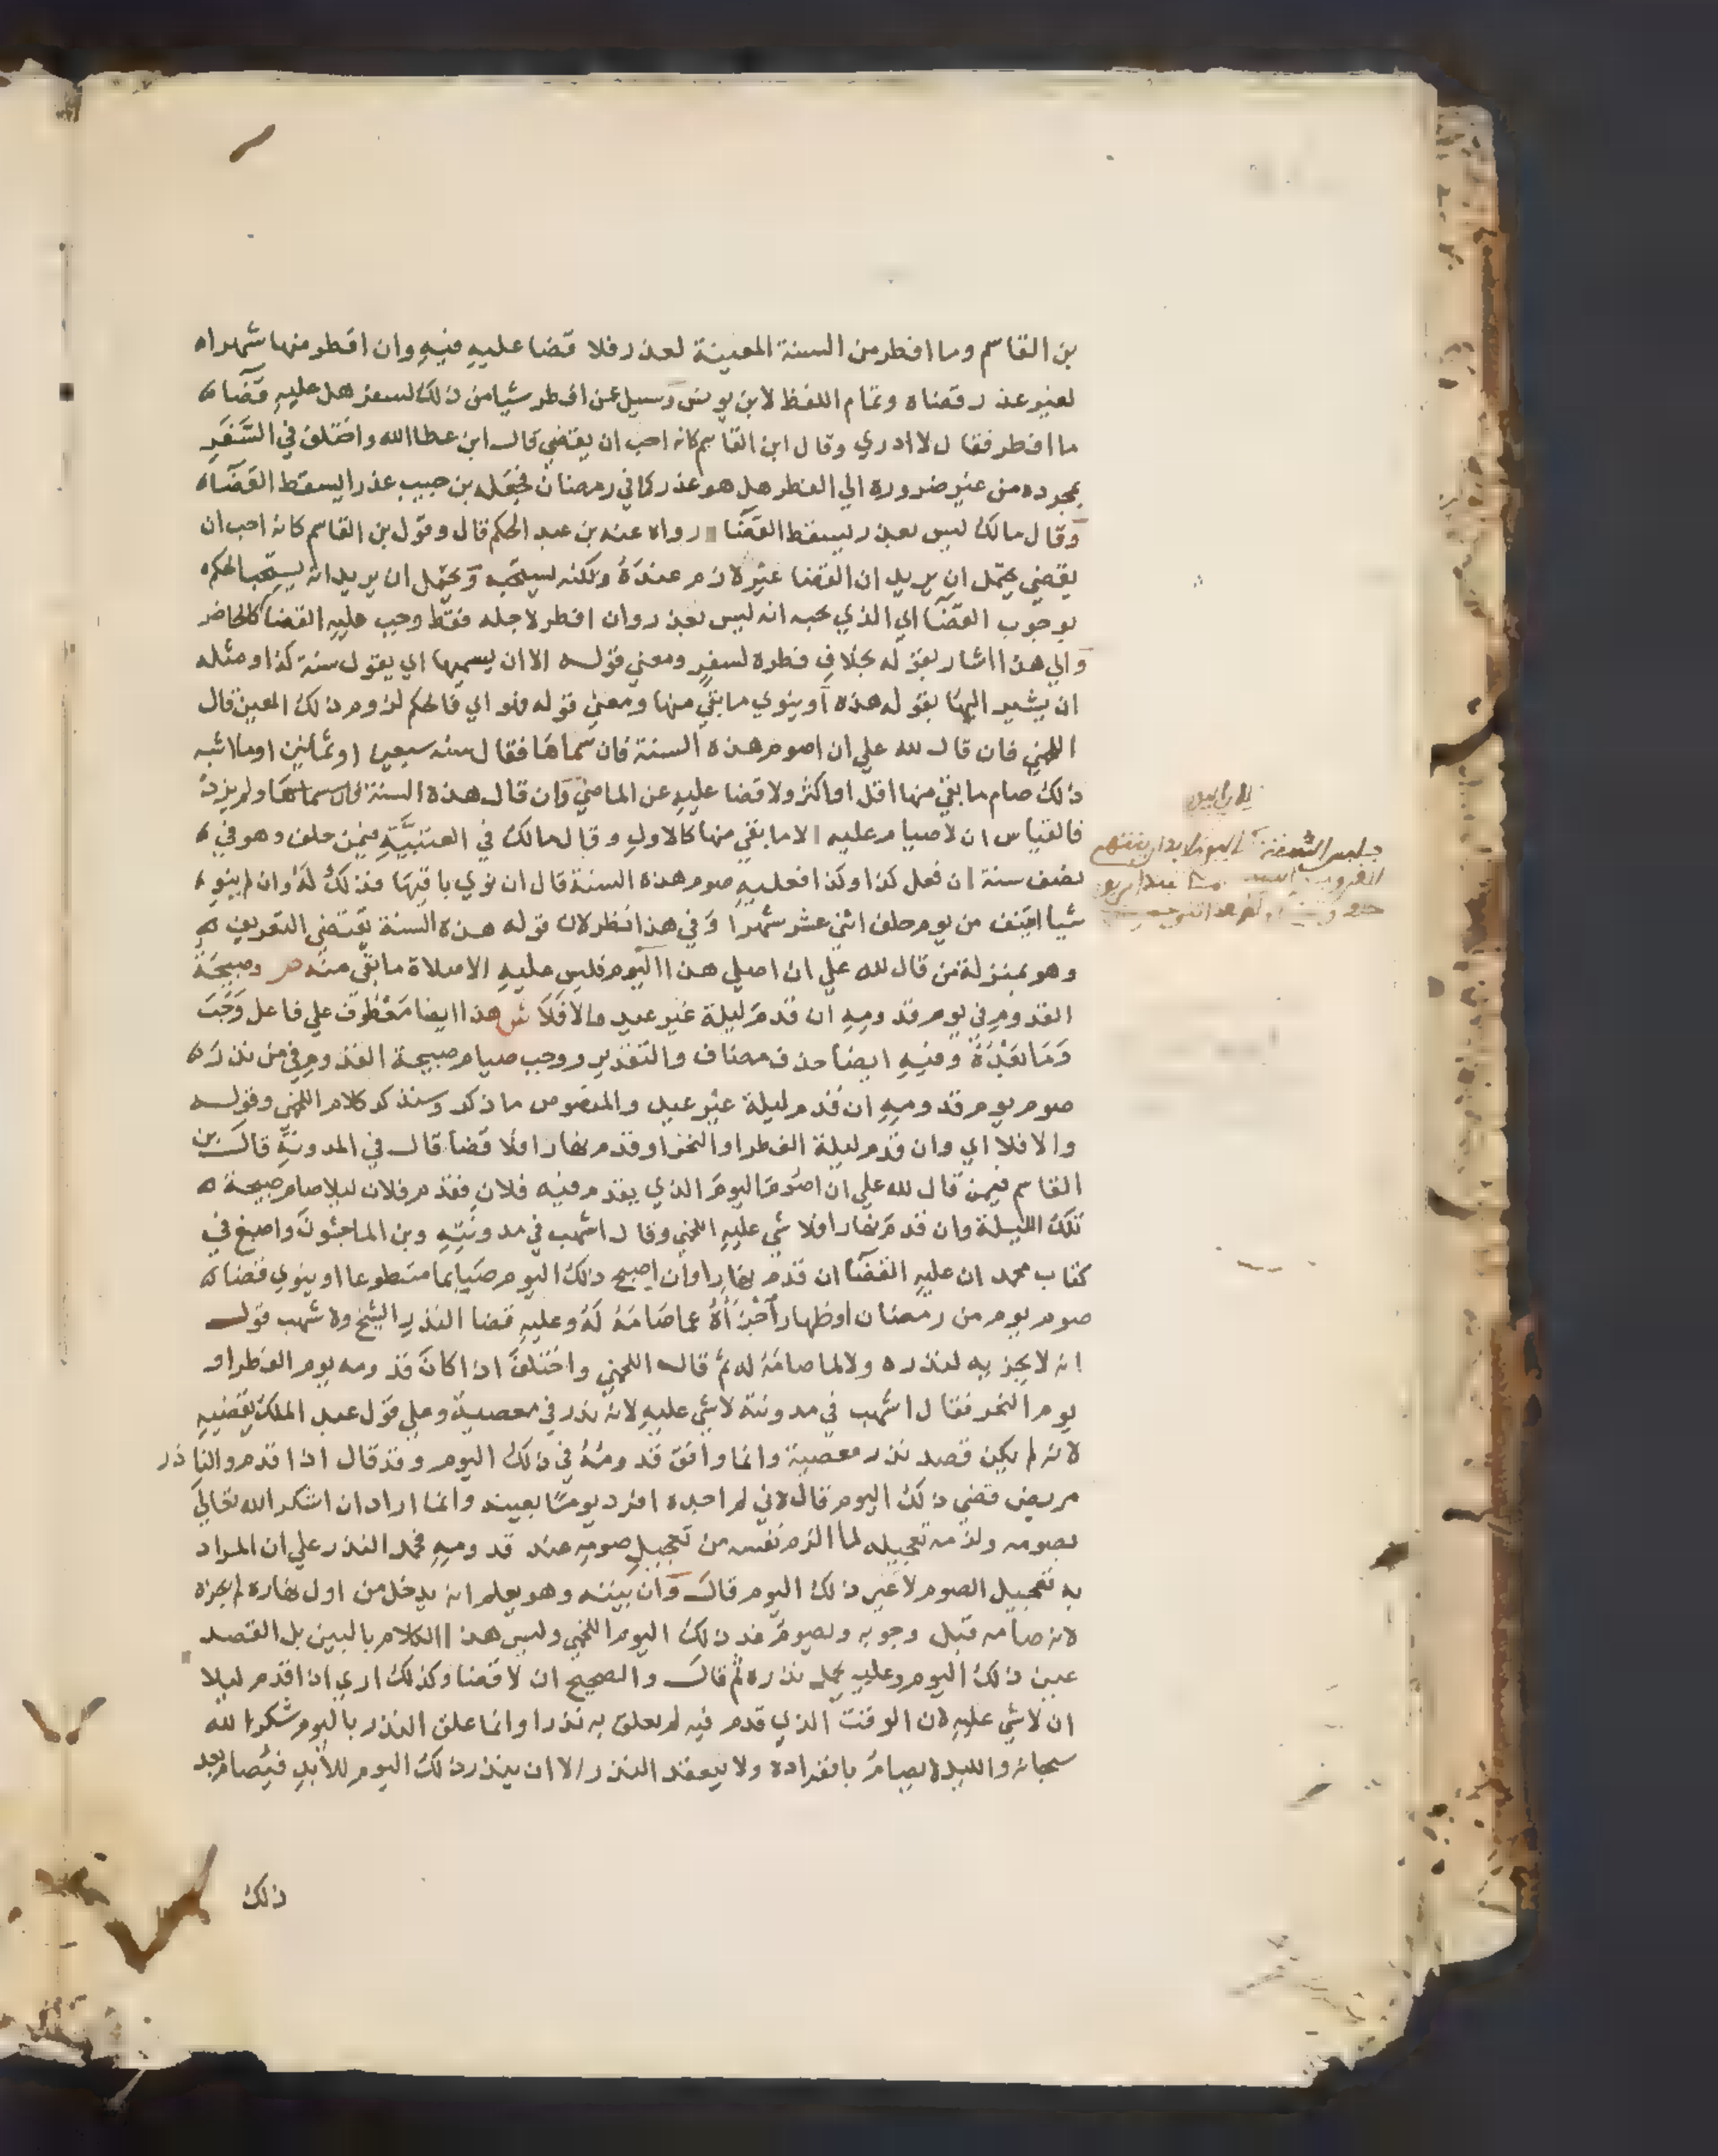 بن القاسم وما افطر من السنة المعينة لعذر فلا قضا عليه فيه وان افطر منها شهرا
لغير عذر قضاه وتمام اللفظ لابن يونس وسيل عن افطر شيا من ذلك لسفر هل عليه قضاء
ما افطر فقال لا ادري وقال ابن القاسم كانه احب ان يقضي قال ابن عطا الله واختلف في السَّفَرِ
بمجرده من غير ضرورة الي الفطر هل هو عذر كما في رمضان فجعله بن حبيب عذرا يسقط القضاء
وقال مالك ليس بعذر يسقط القضا رواه عنه بن عبد الحكم قال وقول بن القاسم كانه احب ان
يقضي يحتمل ان يريد ان القضا غير لازم عنده ولكنه يستحب ويحتمل ان يريد انه يستحب الحكم
بوجوب القضا اي الذي يحبه انه ليس بعذر وان افطر لاجله فقط وجب عليه القضا كالحاضر
والي هذا اشار بقوله بخلاف فطره لسفر ومعني قوله الا ان يسميها اي يقول سنة كذا ومثله
ان يشير اليها بقوله هذه او ينوي ما بقي منها ومعني قوله فهو اي فالحكم لزوم ذلك المعين قال
اللخمي فان قال لله علي ان اصوم هذه السنة فان سماها فقال سنة سبعين او ثمانين او ما اشبه
ذلك صام ما بقي منها اقل او اكثر ولا قضا عليه عن الماضي وان قال هذه السنة سماها ولم يزد
فالقياس ان لا صيام عليه الا ما بقي منها كالاول وقال مالك في العتبيَّة فيمن حلف وهو في
نصف سنة ان فعل كذا وكذا فعليه صوم هذه السنة قال ان نوي باقيها فذلك له وان لم ينو
شيا ايتنف من يوم حلف اثني عشر شهرا وفي هذا نظر لان قوله هذه السنة يقتضي التعريف
وهو بمنزلة من قال لله علي ان اصلي هذا اليوم فليس عليه الا صلاة ما بقي منه ص وصبيحة
القدوم في يوم قدومه ان قدم ليلة غير عيد والا فلا ش هذا ايضا معطوف علي فاعل وجب
وما بعده وفيه ايضا حذف مضاف والتقدير ووجب صيام صبيحة القدوم في من نذر
صوم يوم قدومه ان قدم ليلة غير عيد والمنصوص ما ذكر وسنذكر كلام اللخمي وقوله
والا فلا اي وان قدم ليلة الفطر او النحر او قدم نهارا فلا قضا قال في المدونة قال بن
القاسم فيمن قال لله علي ان اصوم اليوم الذي يقدم فيه فلان فقدم فلان ليلا صام صبيحة
تلك الليلة وان قدم نهارا فلا شي عليه اللخمي وقال اشهب في مدونته وبن الماجشون واصبغ في
كتاب محمد ان عليه القضا ان قدم نهارا وان اصبح ذلك اليوم صيايما متطوعا او ينوي قضاء
صوم يوم من رمضان او ظهار أجزأه عما صامه له وعليه قضا النذر الشيخ ولاشهب قول
انه لا يجزيه لنذره ولا لما صامه له ثم قال اللخمي واختلف اذا كان قدومه يوم الفطر او
يوم النحر فقال اشهب في مدونته لا شي عليه لانه نذر في معصية وعلي قول عبد الملك يقضيه
لانه لم يكن قصد نذر معصية وانما وافق قدومه في ذلك اليوم وقد قال اذا قدم والناذر
مريض قضي ذلك اليوم قال لاني لم اجده افرد يوما بعينه وانما اراد ان اشكر الله تعالي
بصومه ولزمه تعجيله لما الزم نفسه من تعجيل صومه عند قدومه فحمل النذر علي ان المراد
به تعجيل الصوم لا غير ذلك اليوم قال وان بيته وهو يعلم انه يدخل من اول نهاره لم يجزه
لانه صامه قبل وجوبه وليصوم غد ذلك اليوم اللخمي وليس هذا الكلام بالبين بل القصد
عين ذلك اليوم وعليه يحمل نذره ثم قال والصحيح ان لا قضا وكذلك اري اذا قدم ليلا
ان لا شي عليه لان الوقت الذي قدم فيه لم يعلق به نذرا وانما علق النذر باليوم شكرا لله
سبحانه والليل لا يصام بانفراده ولا ينعقد النذر الا ان ينذر ذلك اليوم للأبد فيصام بعد
ذلك